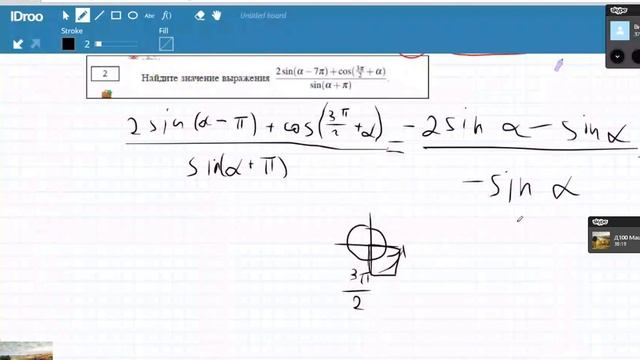 IDroo
Abc
f()
Untitled board
skype
Stroke
Fill
2
2
Найдите значение выражения (2sin(α − 7π) + cos(3π/2 + α)) / sin(α + π).
(2 sin(α − π) + cos(3π/2 + α)) / sin(α + π) = (−2 sin α − sin α) / −sin α
3π/2
skype
Д100 Мас